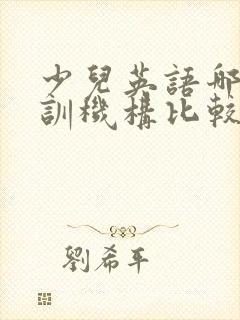 少兒英語哪
訓機構比較
劉希平